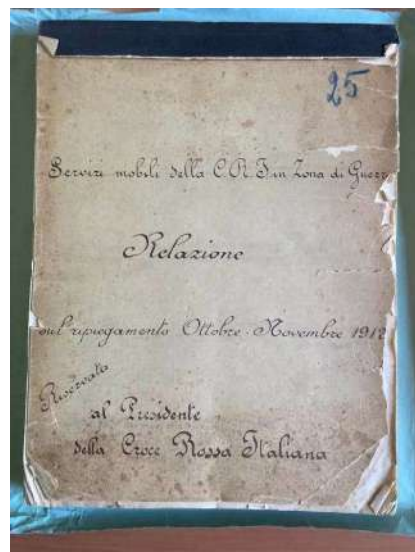 25
Servizi mobili della C.R.I in Zona di Guerr
Relazione
sul ripiegamento Ottobre-Novembre 191
Riservata
al Presidente
della Croce Rossa Italiana